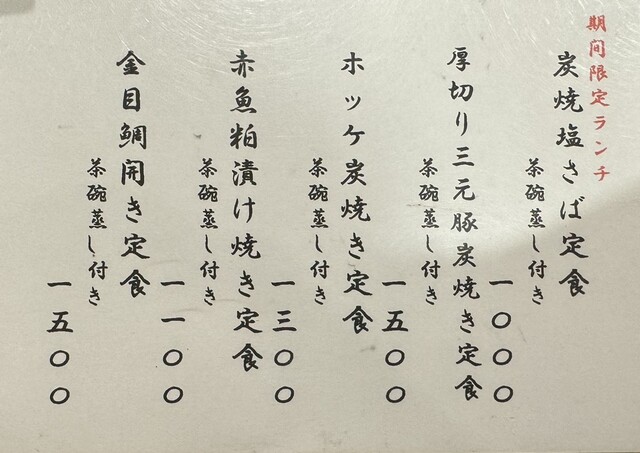 期間限定ランチ
炭焼塩さば定食
茶碗蒸し付き
一〇〇〇
厚切り三元豚炭焼き定食
茶碗蒸し付き
一五〇〇
ホッケ炭焼き定食
茶碗蒸し付き
一三〇〇
赤魚粕漬け焼き定食
茶碗蒸し付き
一一〇〇
金目鯛開き定食
茶碗蒸し付き
一五〇〇